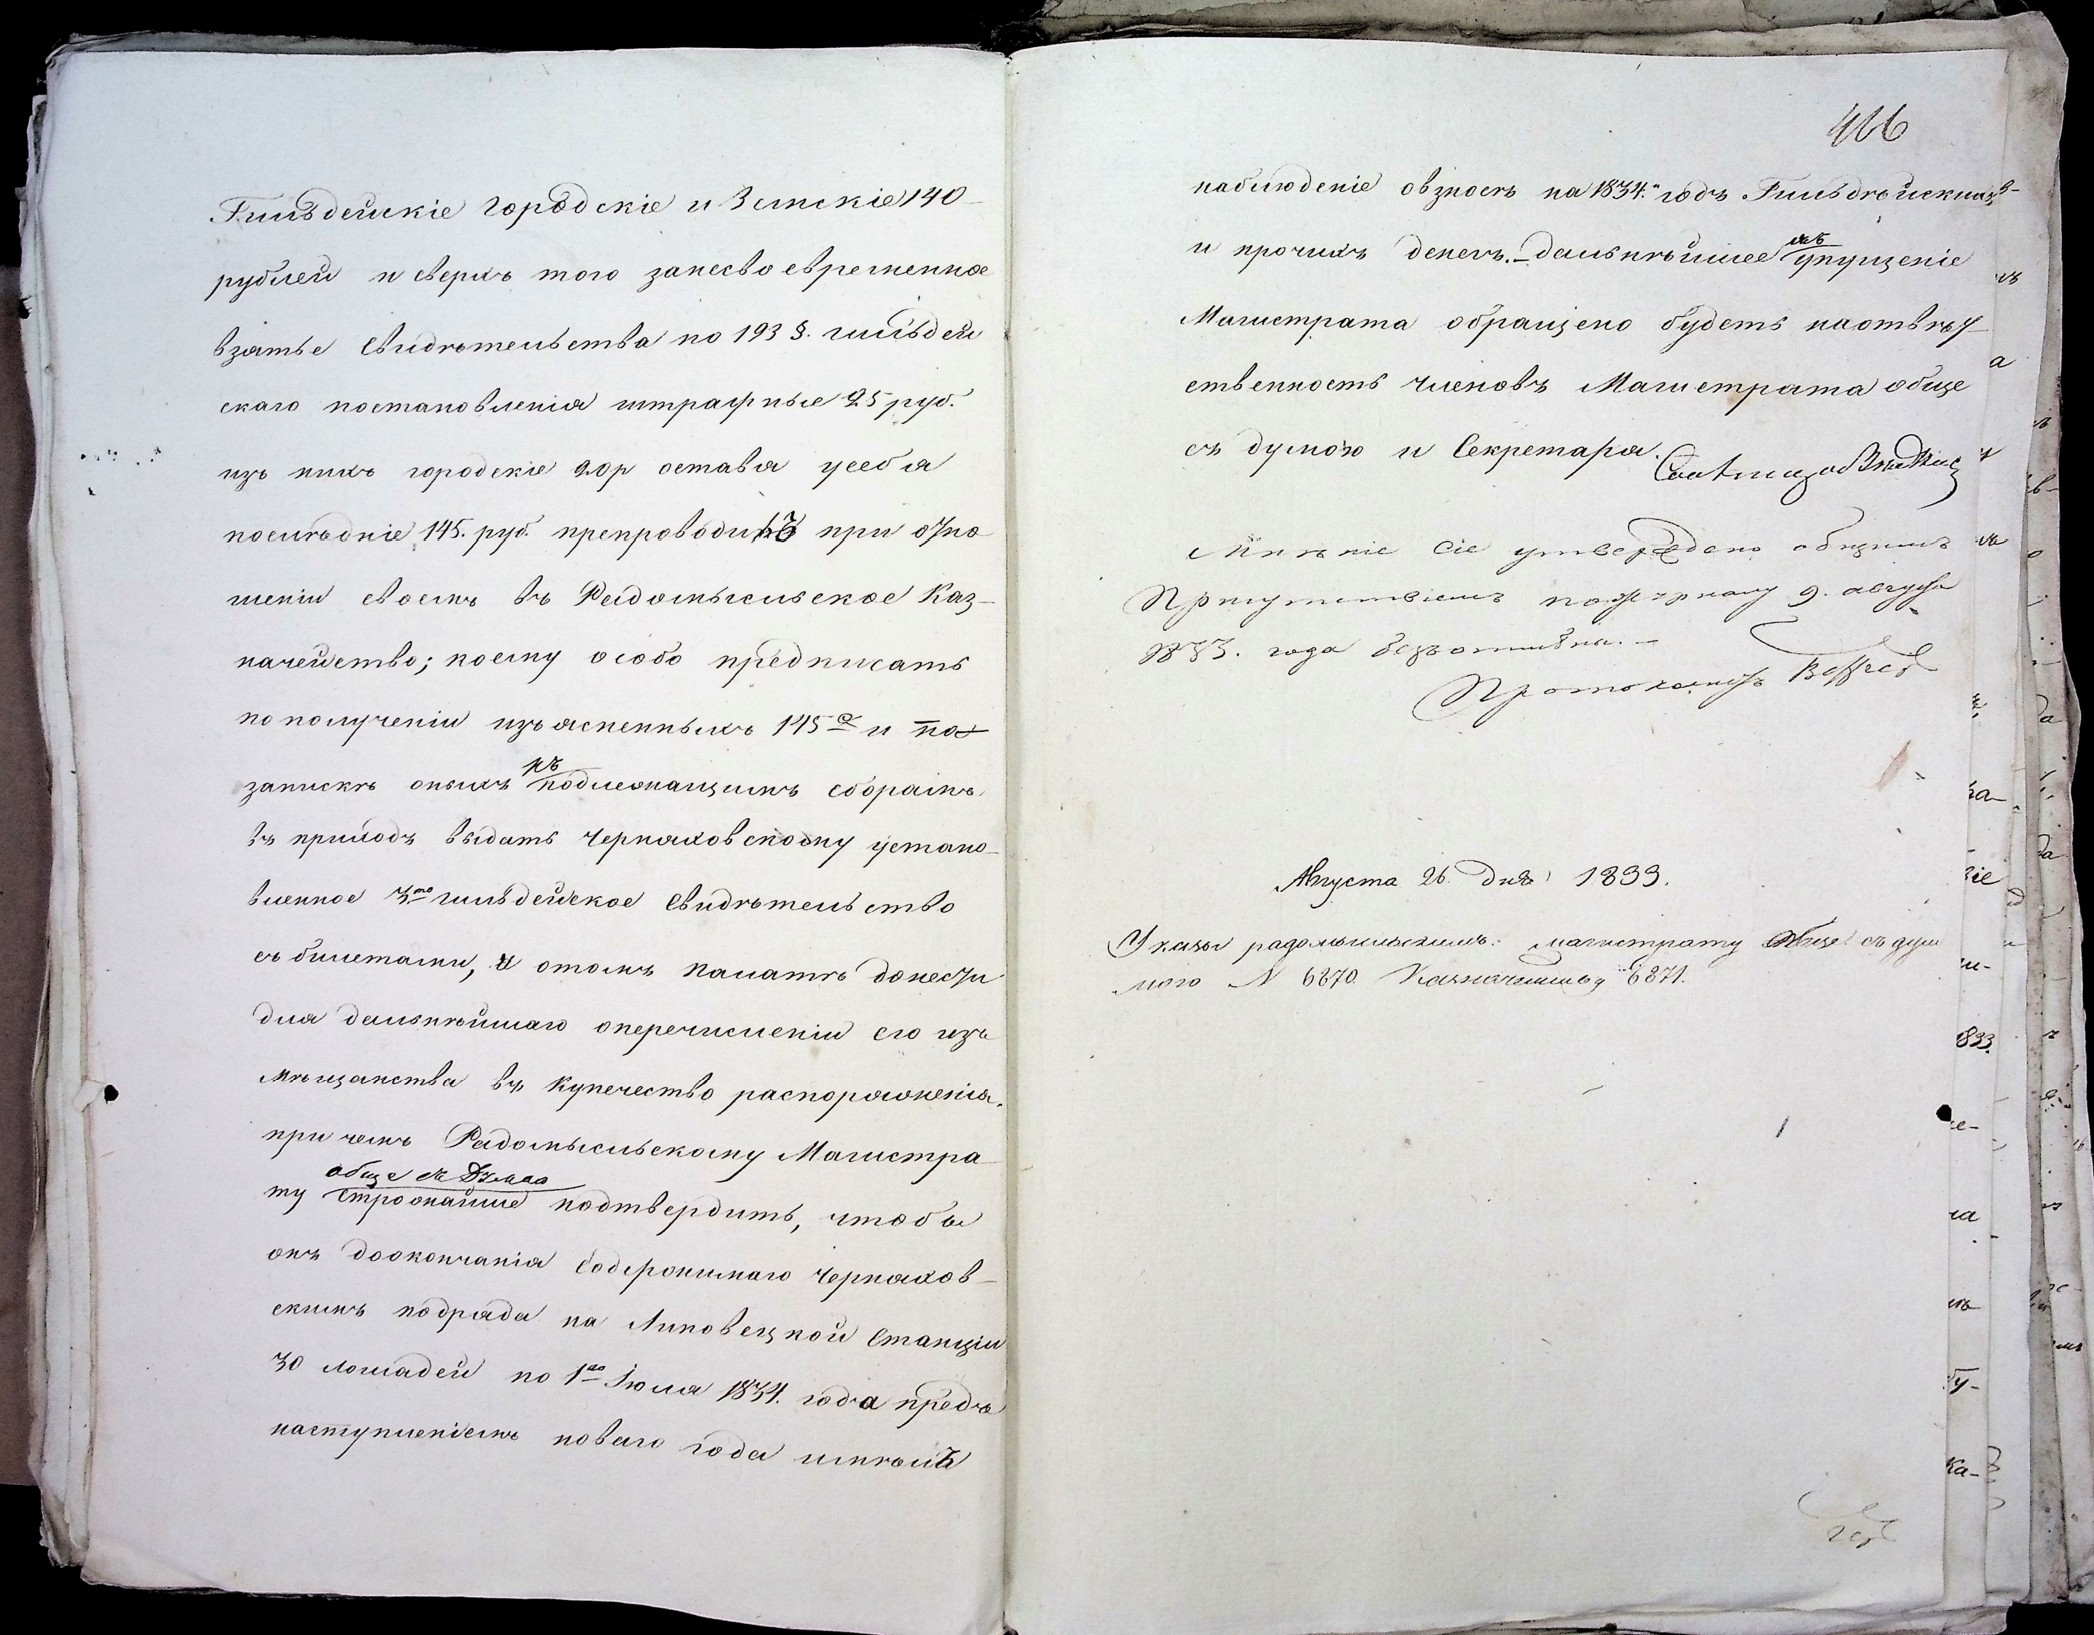 Гильдейскіе городскіе и Земскіе 140
рублей и сверхъ того занесвоевременное
взятье свидѣтельства по 193 §. гильдей
скаго постановленія штрафные 25 руб.
изъ нихъ городскіе 20р оставя усебя
послѣдніе 145. руб. препроводилъ при отно
шеніи своемъ въ Радомысльское Каз-
начейство; коему особо предписать
по полученіи изъясненныхъ 145 р и по
запискѣ оныхъ къ подлежащимъ сборамъ
въ приходъ выдать Черняховскому устано-
вленное 3то гильдейское свидѣтельство
съ билетами, и отомъ палатѣ донести
для дальнѣйшаго оперечисленіи его изъ
мѣщанства въ купечество распоряженія.
при чемъ Радомысльскому Магистра
обще съ Думою
ту строжайше подтвердить, чтобы
онъ доокончанія содержимаго Черняхов-
скимъ подряда на Липовецкой Станціи
30 лошадей по 1ое Іюля 1834. года предъ
наступленіемъ новаго года имѣлъ
466
наблюденіе овзносѣ на 1834. годъ Гильдѣйскихъ
и прочихъ денегъ. – дальнѣйшее упущеніе
Магистрата обращено будетъ наотвѣт
ственность членовъ Магистрата обще
съ думою и Секретаря.
Мнѣніе сіе утверждено общимъ
Присутствіемъ пожурналу 9. августа
1833. года
Протоколистъ
Августа 26. дня 1833.
Указы радомысльскимъ: магистрату обще съ ду
мою № 6870. Казначейству 6871.